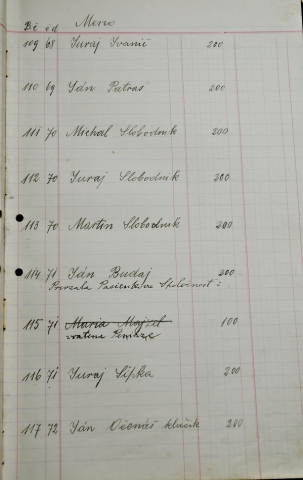 Bč čd Meno
109 68 Juraj Ivanič 200
110 69 Ján Patraš 200
111 70 Michal Slobodník 200
112 70 Juraj Slobodník 200
113 70 Martin Slobodník 200
114 71 Ján Budaj 200
Prevzala Spoločnosť
115 71 Maria 100
vratene Peniaze
116 71 Juraj Sipka 200
117 72 Ján Očenáš klučik 200